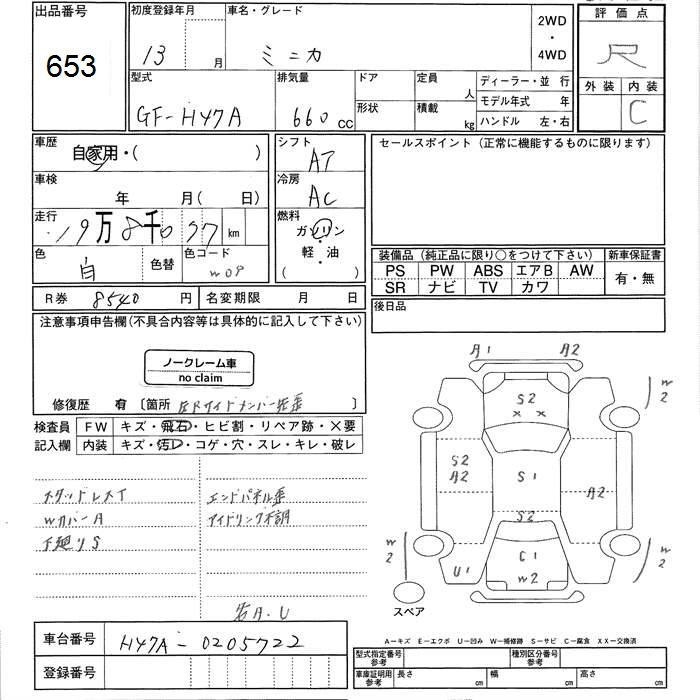 出品番号
653
初度登録年月
13 月
車名・グレード
ミニカ
2WD
・
4WD
評価点
R
外装 内装
C
型式
GF-H47A
排気量
660 cc
ドア
形状
定員
人
積載
kg
ディーラー・並 行
モデル年式 年
ハンドル 左・右
車歴
自家用・( )
車検
年 月( 日)
走行
19万8千077 km
色
白
色替
色コード
W09
シフト
AT
冷房
AC
燃料
ガソリン
軽・油
( )
セールスポイント (正常に機能するものに限ります)
装備品 (純正品に限り○をつけて下さい)
PS PW ABS エアB AW
SR ナビ TV カワ
新車保証書
有・無
後日品
R券 8540 円
名変期限 月 日
注意事項申告欄(不具合内容等は具体的に記入して下さい)
ノークレーム車
no claim
修復歴 有 〔箇所 〕
検査員
記入欄
FW キズ・飛石・ヒビ割・リペア跡・×要
内装 キズ・汚レ・コゲ・穴・スレ・キレ・破レ
Wカバー A
下廻り S
エンドパネル歪
アイドリング不調
A1 A2
S2
× ×
W2
S2
A2
S1
A2
S2
W2
C1
W2
U1
W2
スペア
A−キズ E−エクボ U−凹み W−補修跡 S−サビ C−腐食 XX−交換済
車台番号
H47A-0205722
登録番号
型式指定番号
参考
種別区分番号
参考
車庫証明用
参考
長さ cm
幅 cm
高さ cm